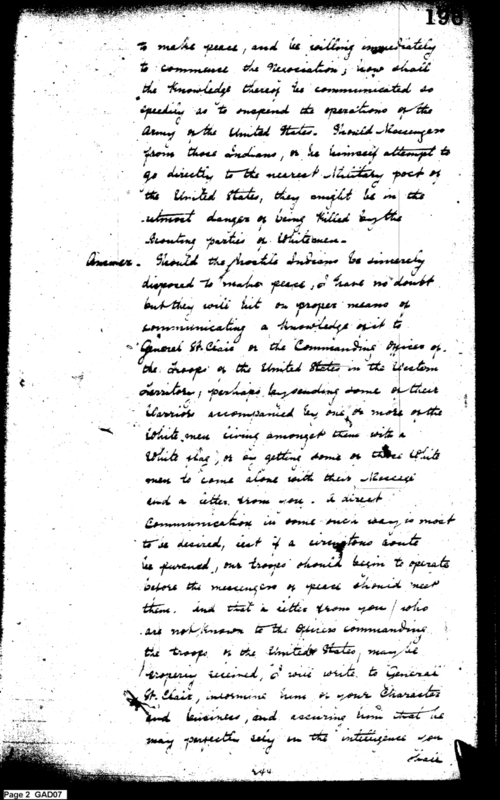 196
to make peace, and be willing immediately
to commence the Negociation; how shall
the Knowledge thereof be communicated so
speedily as to suspend the operations of the
Army of the United States. Should Messengers
from those Indians, or he himself attempt to
go directly to the nearest Military post of
the United States, they might be in the
utmost danger of being Killed by the
Scouting parties of Whitemen.
Answer. Should the Hostile Indians be sincerely
disposed to make peace, I have no doubt
but they will hit on proper means of
communicating a Knowledge of it to
General St. Clair or the Commanding Officer of
the Troops of the United States in the Western
Territory; perhaps by sending some of their
Warriors accompanied by one or more of the
White men living amongst them with a
White flag, or by getting some of those White
men to come alone with their Message
and a letter from you. A direct
Communication in some such way is most
to be desired, lest if a circuitous route
be pursued, our troops should begin to operate
before the messengers of peace should meet
them. And that a letter from you / who
are not known to the Officers commanding
the troops of the United States / may be
properly received, I will write to General
St. Clair, informing him of your Character
and business, and assuring him that he
may perfectly rely on the intelligence you
244
Page 2 GAD07